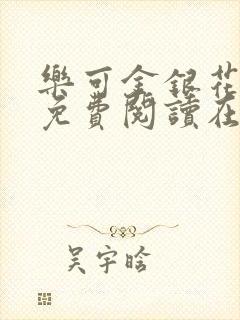 樂可金銀花
免費閱讀在
吴宇晗